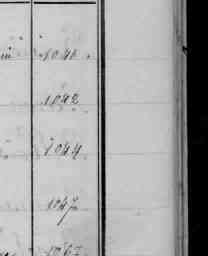 in 1040
1042
1044
1047